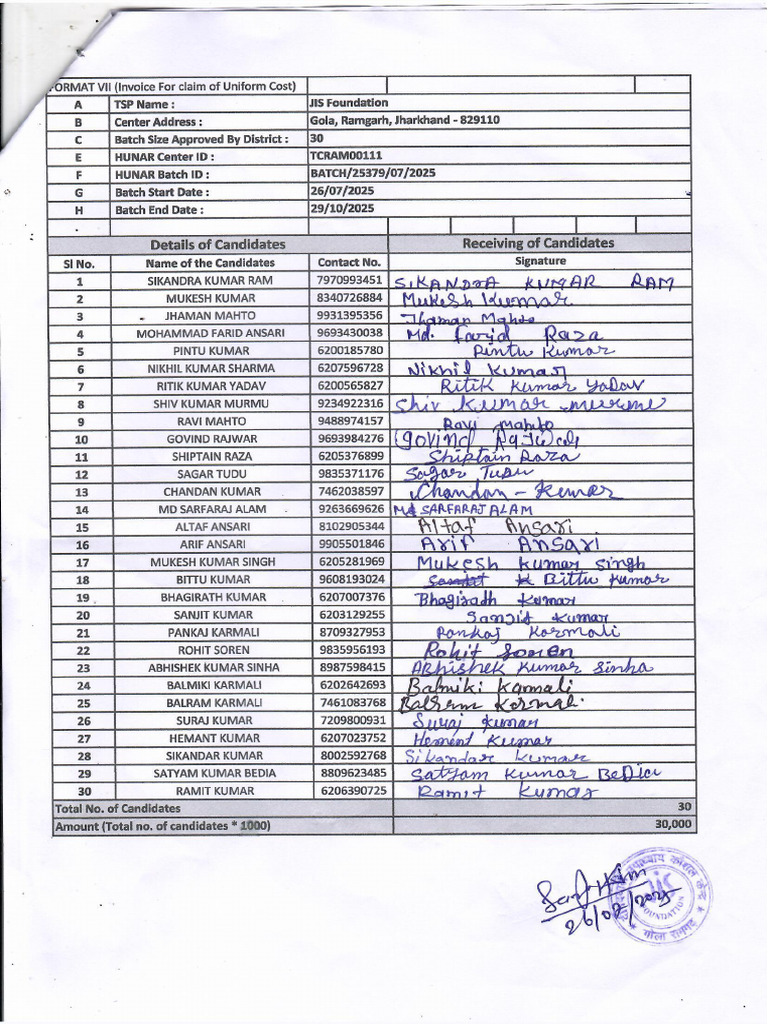 ORMAT VII (Invoice For claim of Uniform Cost)
A TSP Name : JIS Foundation
B Center Address : Gola, Ramgarh, Jharkhand - 829110
C Batch Size Approved By District : 30
E HUNAR Center ID : TCRAM00111
F HUNAR Batch ID : BATCH/25379/07/2025
G Batch Start Date : 26/07/2025
H Batch End Date : 29/10/2025
Details of Candidates Receiving of Candidates
Sl No. Name of the Candidates Contact No. Signature
1 SIKANDRA KUMAR RAM 7970993451 SIKANDRA KUMAR RAM
2 MUKESH KUMAR 8340726884 Mukesh Kumar
3 JHAMAN MAHTO 9931395356 Jhaman Mahto
4 MOHAMMAD FARID ANSARI 9693430038 Md. Farid Raza
5 PINTU KUMAR 6200185780 Pintu Kumar
6 NIKHIL KUMAR SHARMA 6207596728 Nikhil Kumar
7 RITIK KUMAR YADAV 6200565827 Ritik Kumar Yadav
8 SHIV KUMAR MURMU 9234922316 Shiv Kumar
9 RAVI MAHTO 9488974157 Ravi Mahto
10 GOVIND RAJWAR 9693984276 Govind
11 SHIPTAIN RAZA 6205376899 Shiptain Raza
12 SAGAR TUDU 9835371176 Sagar Tudu
13 CHANDAN KUMAR 7462038597 Chandan - Kumar
14 MD SARFARAJ ALAM 9263669626 Md SARFARAJ ALAM
15 ALTAF ANSARI 8102905344 Altaf Ansari
16 ARIF ANSARI 9905501846 Arif Ansari
17 MUKESH KUMAR SINGH 6205281969 Mukesh Kumar Singh
18 BITTU KUMAR 9608193024 Bittu Kumar
19 BHAGIRATH KUMAR 6207007376 Bhagiradh Kumar
20 SANJIT KUMAR 6203129255 Sanjit Kumar
21 PANKAJ KARMALI 8709327953 Pankaj Karmali
22 ROHIT SOREN 9835956193 Rohit Soren
23 ABHISHEK KUMAR SINHA 8987598415 Abhishek Kumar Sinha
24 BALMIKI KARMALI 6202642693 Balmiki Karmali
25 BALRAM KARMALI 7461083768 Balram Karmali
26 SURAJ KUMAR 7209800931 Suraj Kumar
27 HEMANT KUMAR 6207023752 Hement Kumar
28 SIKANDAR KUMAR 8002592768 Sikandar Kumar
29 SATYAM KUMAR BEDIA 8809623485 Satyam Kumar Bedia
30 RAMIT KUMAR 6206390725 Ramit Kumar
Total No. of Candidates 30
Amount (Total no. of candidates * 1000) 30,000
JIS
FOUNDATION
गोला रामगढ़